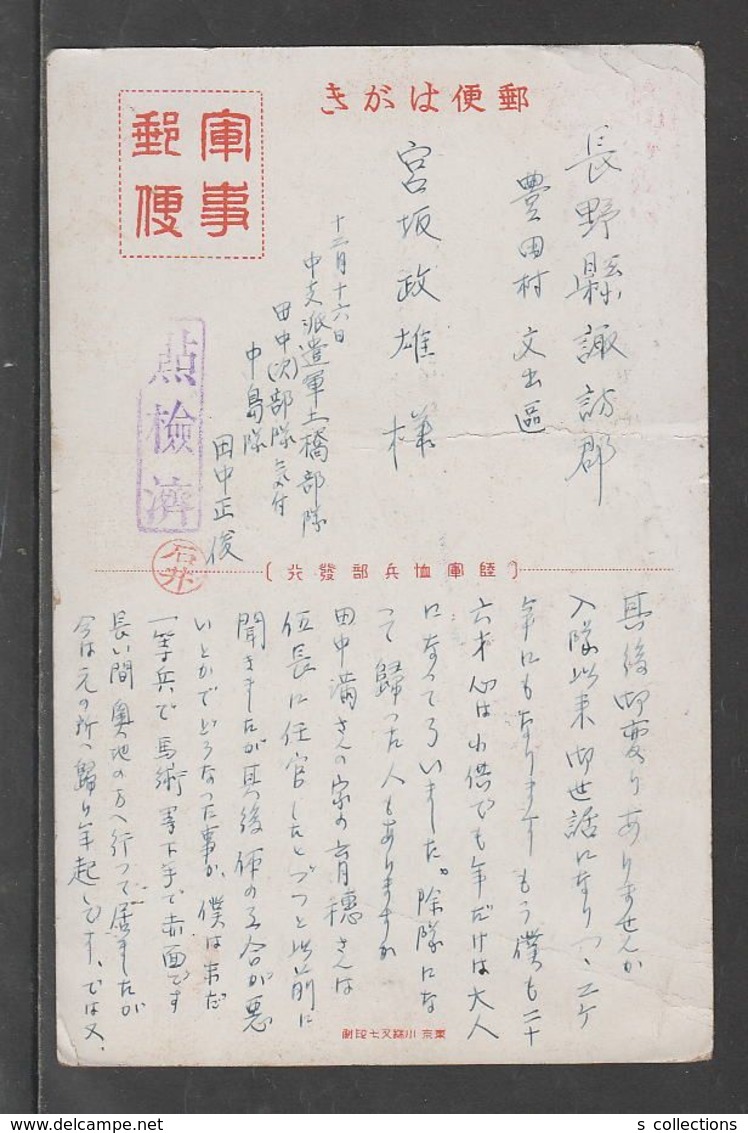 郵便はがき
軍事
郵便
長野縣諏訪郡
豊田村 文出區
宮坂政雄様
十二月十六日
中支派遣軍土橋部隊
田中(次)部隊気付
中島隊
田中正俊
点檢濟
石井
(陸軍恤兵部發行)
其後御変りありませんか
入隊以来御世話になりつゝ二ケ
年にもなります もう僕も二十
六才 心は小供でも年だけは大人
になってろいました。除隊にな
って歸った人もありますが
田中満さんの家の育穂さんは
伍長に任官したとづっと以前に
聞きましたが其後便の工合が悪
いとかでどうなった事か、僕は未だ
一等兵で馬術等下手で赤面です
長い間奥地の方へ行って居ましたが
今は元の所へ歸り年起しです、では又、
東京 小籏又七印刷
s collections